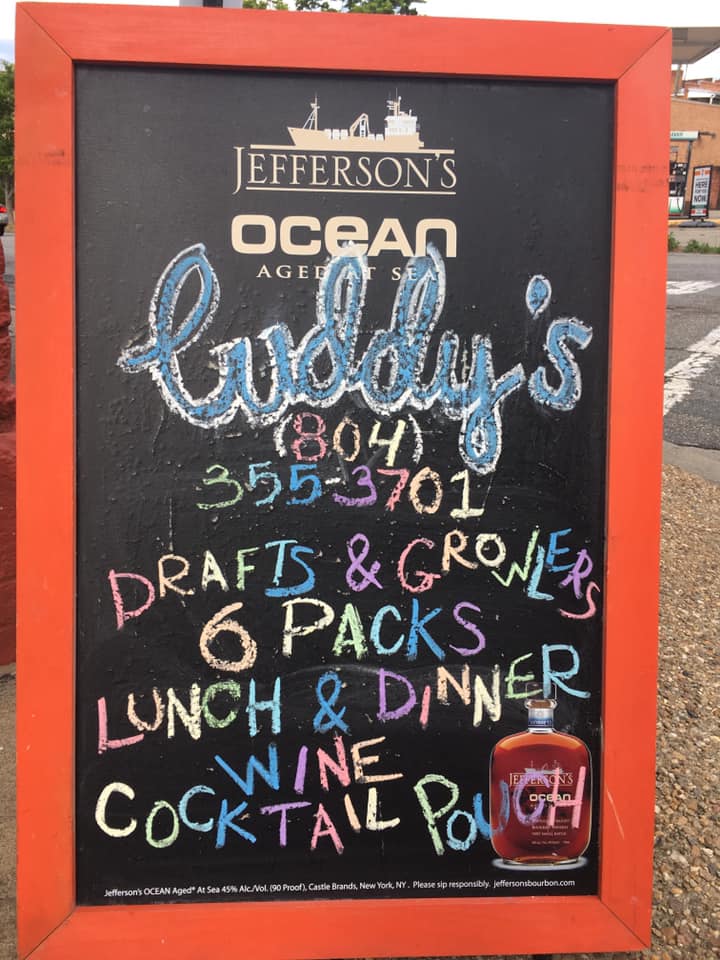 JEFFERSON'S
OCEAN
AGED AT SEA
Buddy's
(804)
355-3701
DRAFTS & GROWLERS
6 PACKS
LUNCH & DINNER
WINE
COCKTAIL POUCH
JEFFERSON'S
OCEAN
Jefferson's OCEAN Aged® At Sea 45% Alc./Vol. (90 Proof), Castle Brands, New York, NY . Please sip responsibly. jeffersonsbourbon.com
HERE
FOR YOU
NOW.